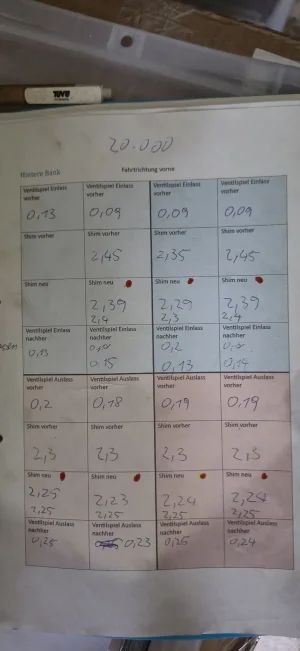 TOVU
20.000
Hintere Bank Fahrtrichtung vorne
Ventilspiel Einlass vorher Ventilspiel Einlass vorher Ventilspiel Einlass vorher Ventilspiel Einlass vorher
0,13 0,09 0,09 0,09
Shim vorher Shim vorher Shim vorher Shim vorher
2,45 2,35 2,45
Shim neu Shim neu Shim neu Shim neu
2,39 2,29 2,39
2,4 2,3 2,4
Ventilspiel Einlass nachher Ventilspiel Einlass nachher Ventilspiel Einlass nachher Ventilspiel Einlass nachher
0,13 0,2
0,15 0,13 0,14
Ventilspiel Auslass vorher Ventilspiel Auslass vorher Ventilspiel Auslass vorher Ventilspiel Auslass vorher
0,2 0,18 0,19 0,19
Shim vorher Shim vorher Shim vorher Shim vorher
2,3 2,3 2,3 2,3
Shim neu Shim neu Shim neu Shim neu
2,25 2,23 2,24 2,24
2,25 2,25 2,25 2,25
Ventilspiel Auslass nachher Ventilspiel Auslass nachher Ventilspiel Auslass nachher Ventilspiel Auslass nachher
0,23 0,25 0,24